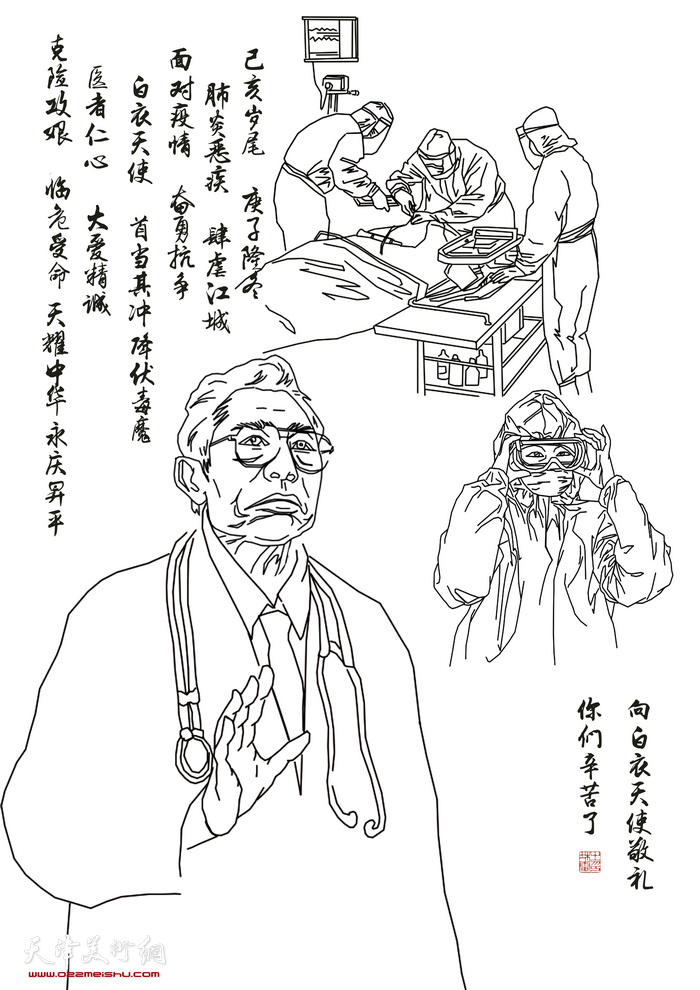 己亥岁尾 庚子隆冬
肺炎恶疾 肆虐江城
面对疫情 奋勇抗争
白衣天使 首当其冲 降伏毒魔
医者仁心 大爱精诚
克险攻艰 临危受命 天耀中华 永庆昇平
向白衣天使敬礼
你们辛苦了
天津美术网
www.022meishu.com